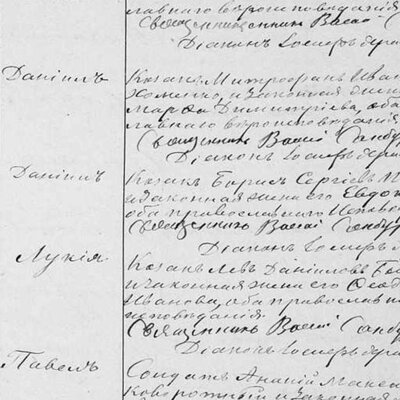 славнаго вѣроисповѣданія
Священникъ Васи
Діаконъ Іосифъ
Даніилъ
Козакъ Митрофанъ Ива
Хоменко, и законная жена
Марѳа Димитріева, оба
славнаго вѣроисповѣданія
Священникъ Василій
Діаконъ Іосифъ
Даніилъ
Козакъ Борисъ Сергіевъ
и законная жена его Евдок
оба православнаго исповѣ
Священникъ Василій
Діаконъ Іосифъ
Лукія
Козакъ Левъ Даніиловъ
и законная жена его Ѳеод
Иванова, оба православ
исповѣданія
Священникъ Василій
Діаконъ Іосифъ
Павелъ
Солдатъ Ананій Максим
и законная